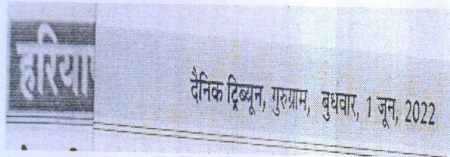 हरिया
दैनिक ट्रिब्यून, गुरुग्राम, बुधवार, 1 जून, 2022